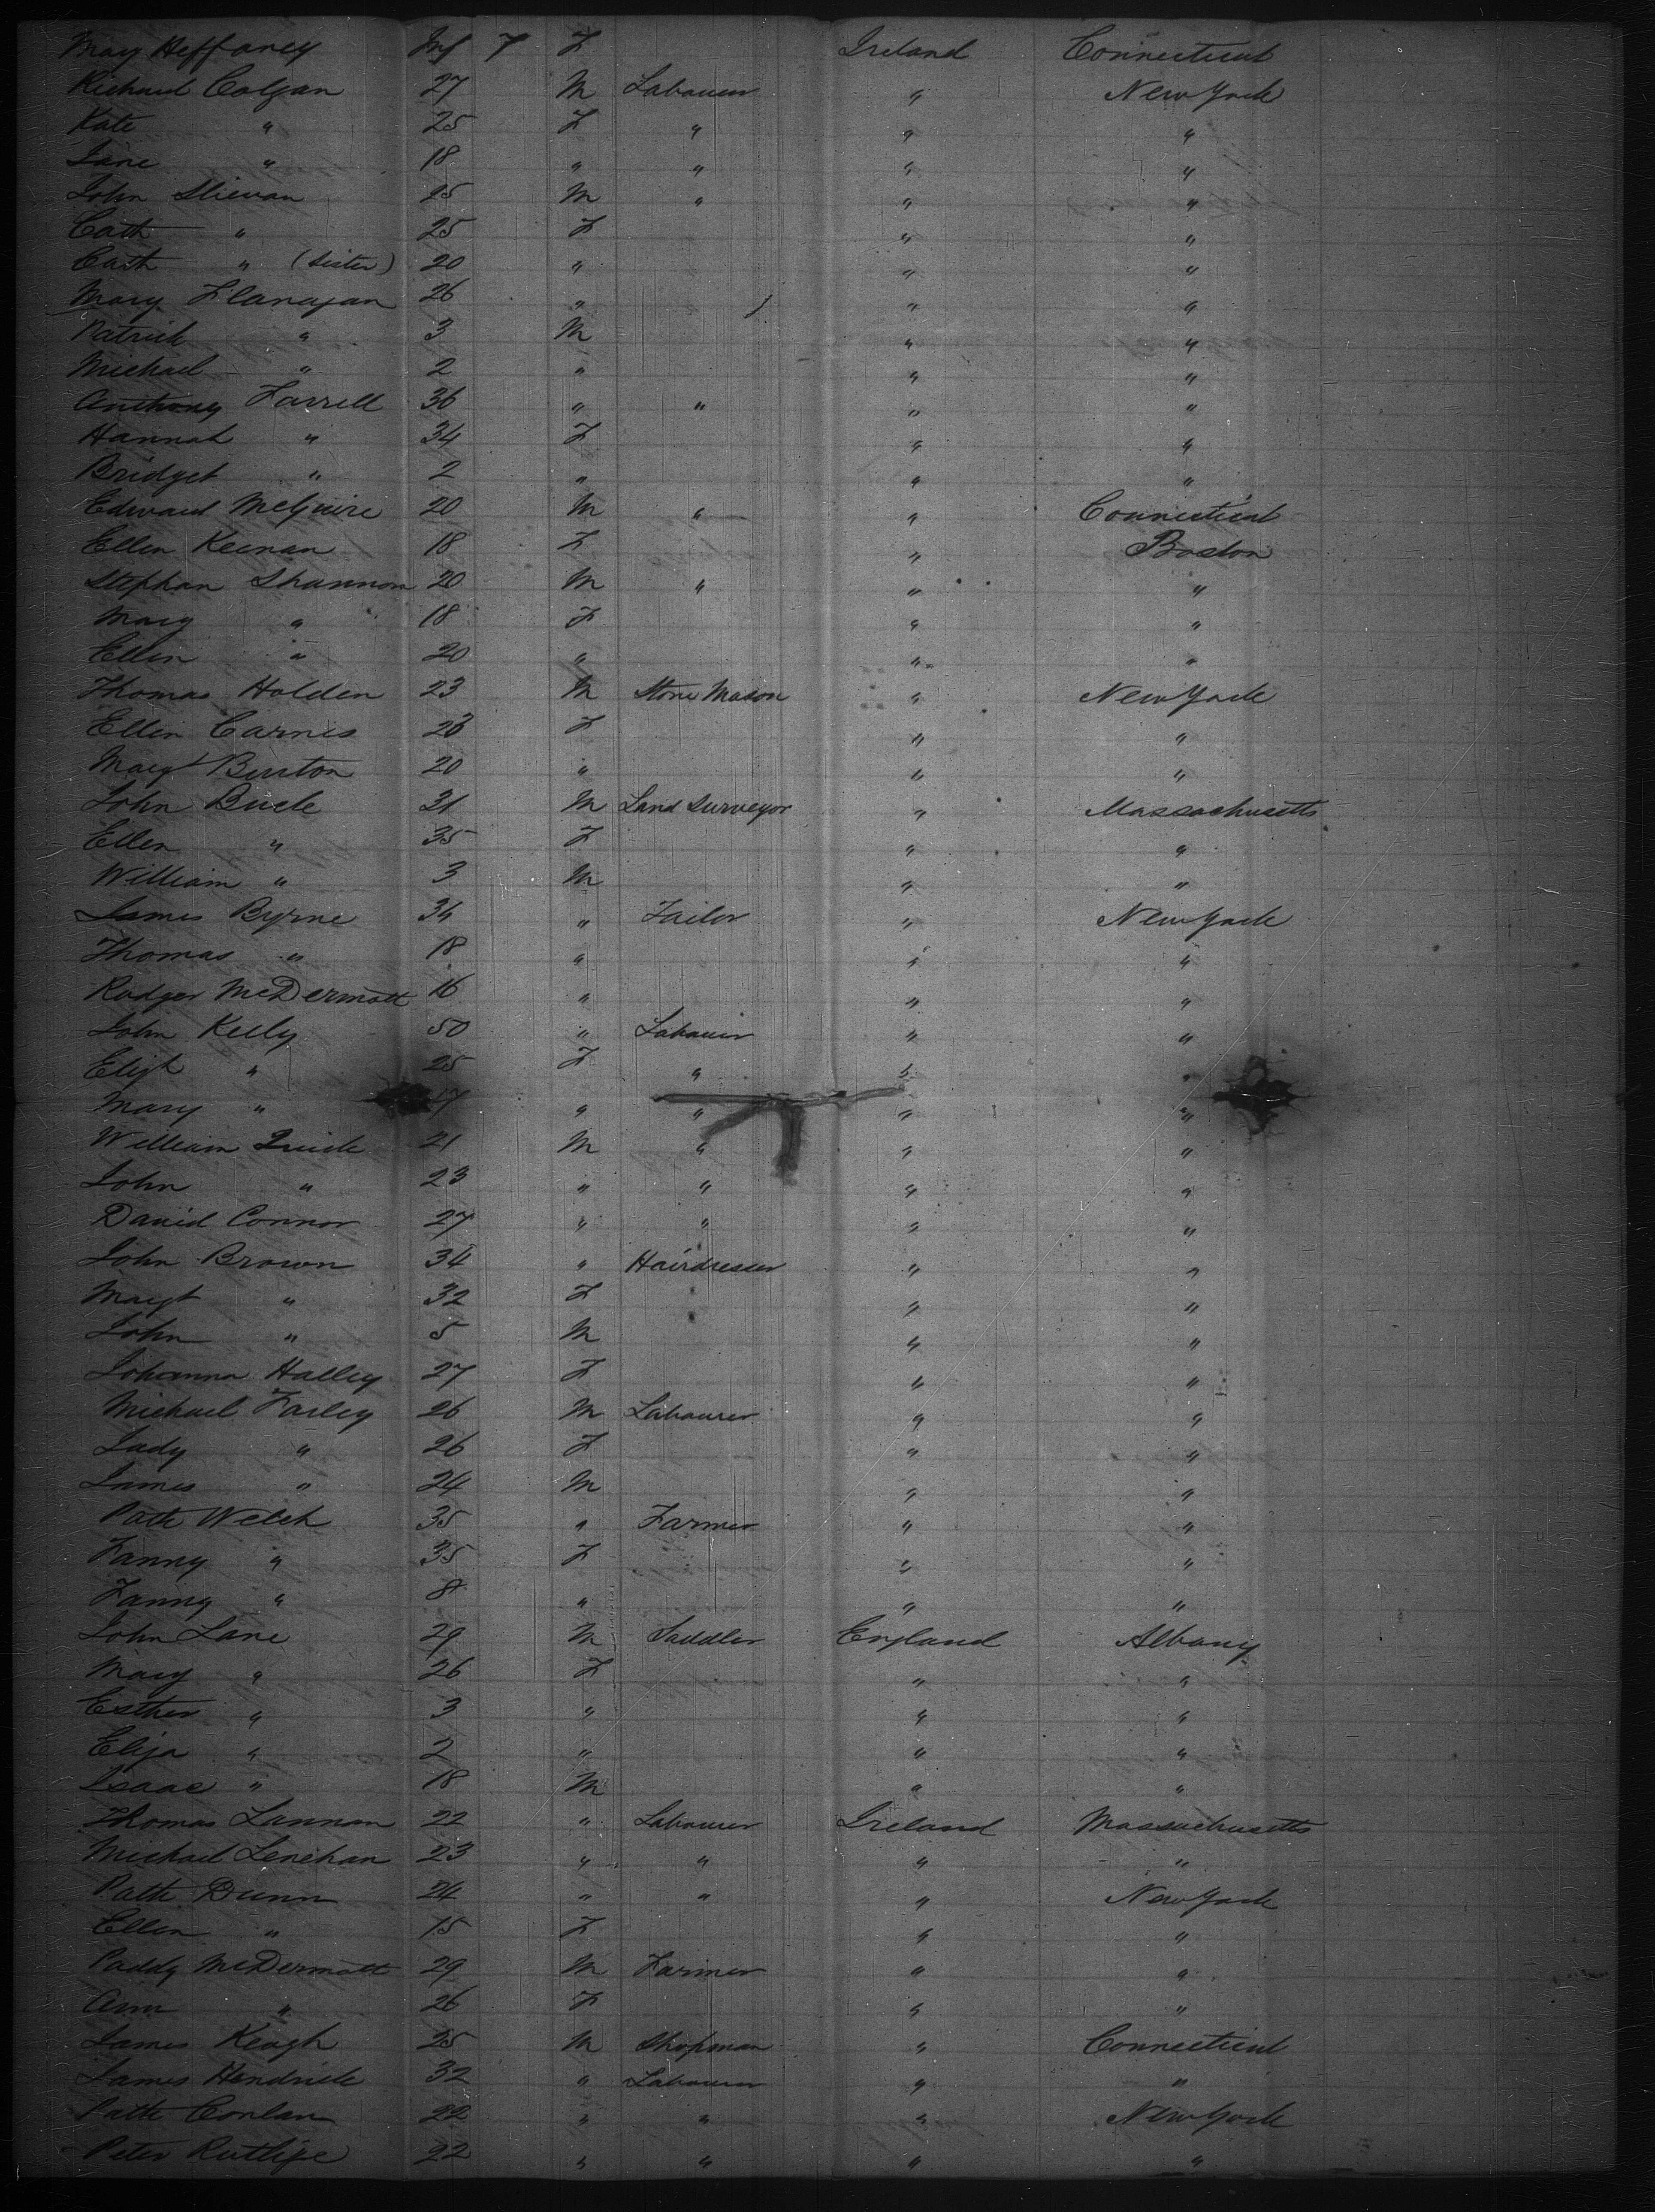 Mary Heffaney Inf 7 F Ireland Connecticut
Richard Colgan 27 M Labourer " New York
Kate " 25 F " " "
Jane " 18 " " " "
John Slievan 25 M " " "
Cath " 25 F " "
Cath " (Sister) 20 " " "
Mary Flanagan 26 " " "
Patrick " 3 M " "
Michael " 2 " " "
Anthony Farrell 36 " " " "
Hannah " 34 F " "
Bridget " 2 " " "
Edward McGuire 20 M " " Connecticut
Ellen Keenan 18 F " Boston
Stephan Shannon 20 M " " "
Mary " 18 F " "
Ellen " 20 " " "
Thomas Holden 23 M Stone Mason " New York
Ellen Carnes 23 F " "
Margt Burton 20 " " "
John Buck 31 M Land Surveyor " Massachusetts
Ellen " 35 F " "
William " 3 M " "
James Byrne 34 " Tailor " New York
Thomas " 18 " " "
Rodger McDermott 16 " " "
John Kelly 50 " Labourer " "
Elizh " 25 F " " "
Mary " 17 " " " "
William Quick 21 M " " "
John " 23 " " " "
David Connor 27 " " " "
John Brown 34 " Hairdresser " "
Margt " 32 F " "
John " 5 M " "
Johanna Halley 27 F " "
Michael Farley 26 M Labourer " "
Judy " 26 F " "
James " 24 M " "
Patk Welch 35 " Farmer " "
Fanny " 35 F " "
Fanny " 8 " " "
John Lane 29 M Saddler England Albany
Mary " 26 F " "
Esther " 3 " " "
Eliza " 2 " " "
Isaac " 18 M " "
Thomas Lannan 22 " Labourer Ireland Massachusetts
Michael Lenehan 23 " " " "
Patk Dunn 24 " " " New York
Ellen " 15 F " "
Paddy McDermott 29 M Farmer " "
Ann " 26 F " "
James Keagh 25 M Shopman " Connecticut
James Hendrick 32 " Labourer " "
Patk Conlan 22 " " " New York
Peter Rutlige 22 " " " "